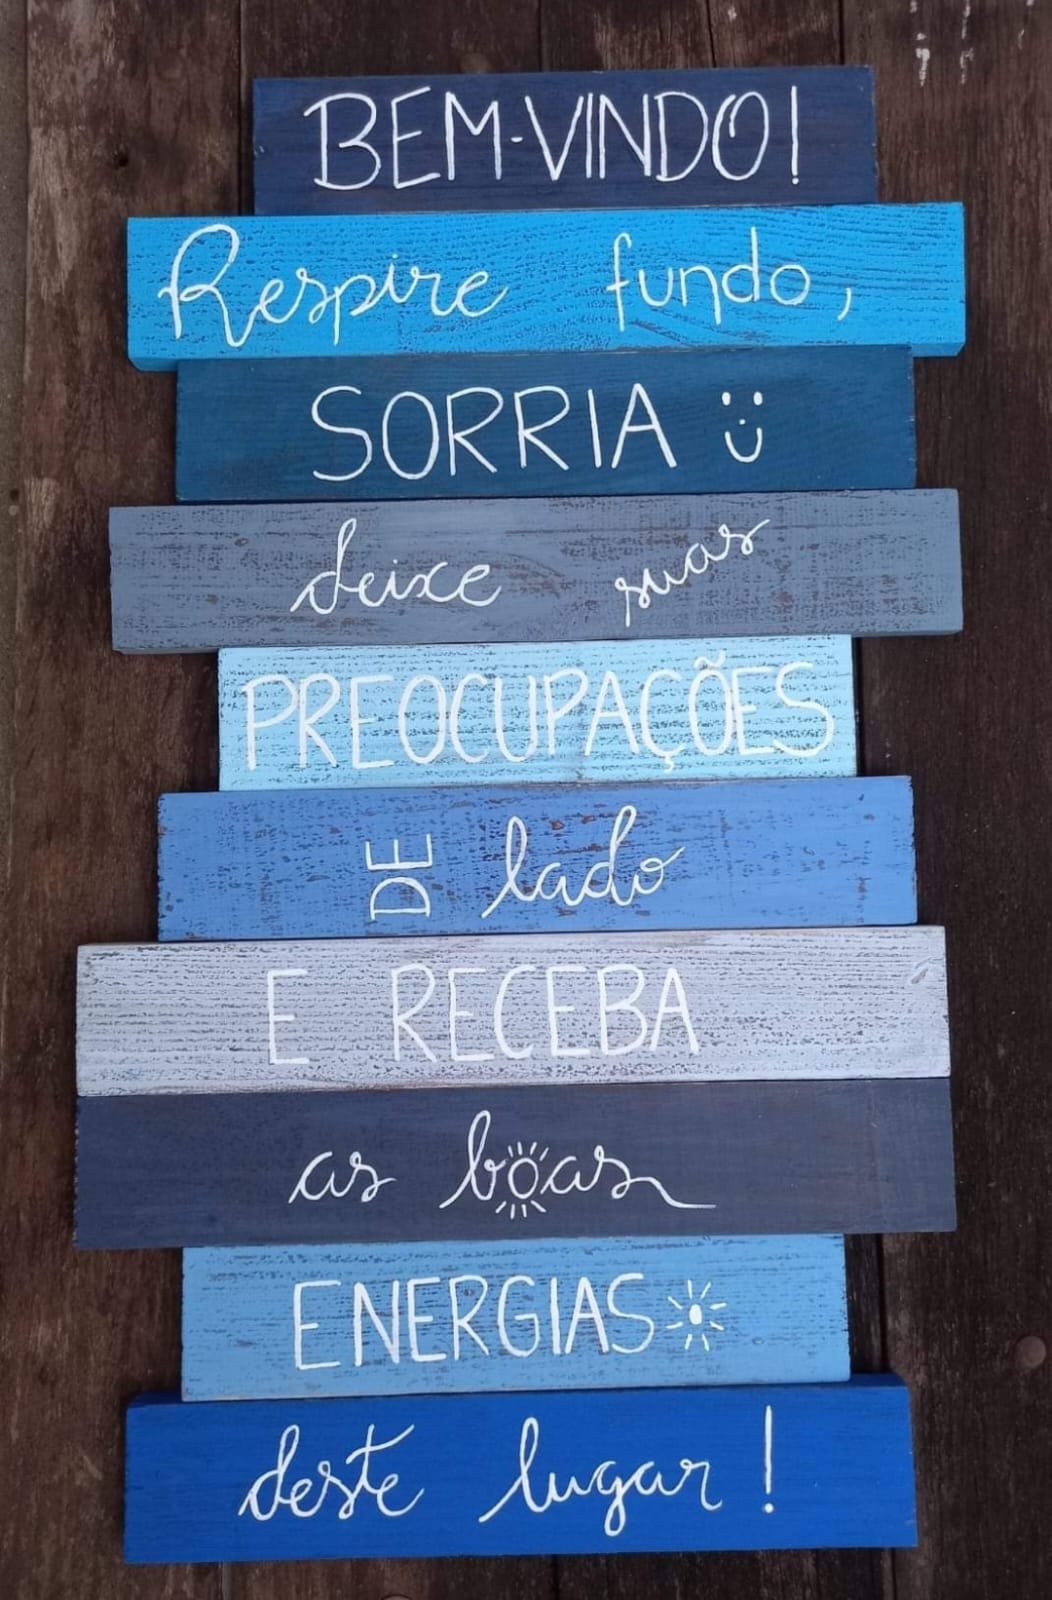 BEM-VINDO!
Respire fundo,
SORRIA
deixe suas
PREOCUPAÇÕES
DE lado
E RECEBA
as boas
ENERGIAS
deste lugar!